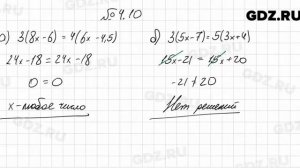 GDZ.RU
№ 4.10
) 3(8x-6)=4(6x-4,5)
24x-18=24x-18
0=0
x-любое число
б) 3(5x-7)=5(3x+4)
15x-21=15x+20
-21≠20
Нет решений
GDZ.RU